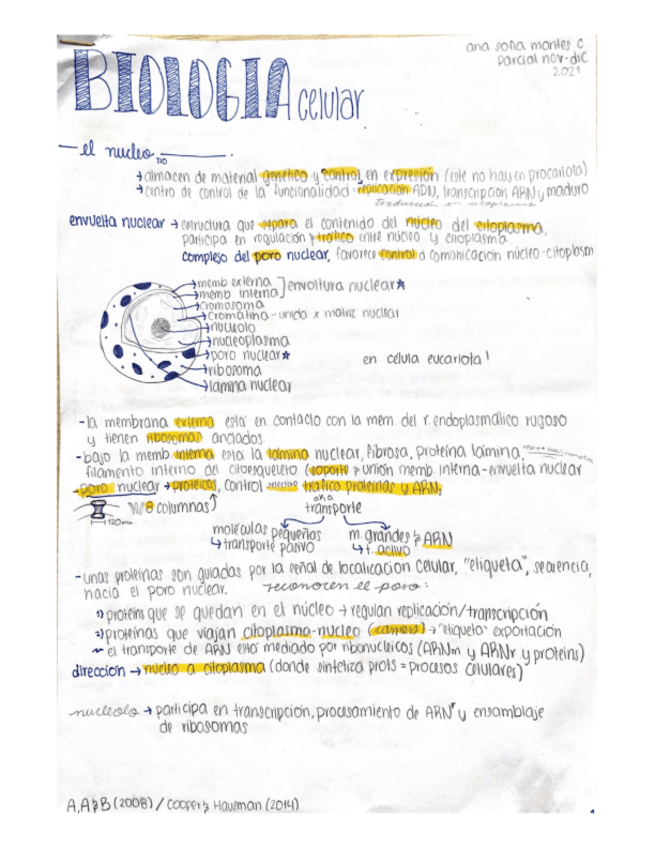 ana sofia montes c
parcial nov-dic
2021
BIOLOGIA celular
el nucleo
→ almacen de material genético y control en expresión (este no hay en procariota)
→ centro de control de la funcionalidad: replicación ADN, transcripción ARN y maduro
traducción en citoplasma
envuelta nuclear → estructura que separa el contenido del núcleo del citoplasma,
participa en regulación y tráfico entre núcleo y citoplasma
complejo del poro nuclear, favorece control d comunicación núcleo-citoplasm
→ memb externa
→ memb. interna ] envoltura nuclear★
→ cromosoma
→ cromatina - unida x matriz nuclear
→ nucleolo
→ nucleoplasma
→ poro nuclear★
→ ribosoma
→ lámina nuclear
en célula eucariota!
- la membrana externa está en contacto con la mem. del r. endoplasmático rugoso
y tienen ribosomas anclados.
- bajo la memb interna esta la lámina nuclear, fibrosa, proteína lamina,
filamento interno del citoesqueleto (soporte y unión memb interna-envuelta nuclear
- poro nuclear → proteicos, control tráfico proteínas y ARN,
w/8 columnas
120nm
aka
transporte
moléculas pequeñas
↳ transporte pasivo
m. grandes y ARN
↳ t. activo
- unas proteínas son guiadas por la señal de localización celular, "etiqueta", secuencia,
hacia el poro nuclear.
reconocen el poro:
1) proteins que se quedan en el núcleo → regulan replicación/transcripción
2) proteínas que viajan citoplasma-nucleo (carriers) → "etiqueta" exportación
~ el transporte de ARN está mediado por ribonucleicos (ARNm y ARNr y proteins)
dirección → nucleo a citoplasma (donde sintetiza prots = procesos celulares)
nucleolo → participa en transcripción, procesamiento de ARNr y ensamblaje
de ribosomas
A, A y B (2008) / Cooper y Hausman (2014)